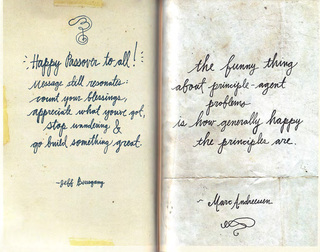 Happy Passover to all!
Message still resonates:
count your blessings,
appreciate what you've got,
stop wandering &
go build something great.
-Jeff
the funny thing
about principle-agent
problems
is how generally happy
the principles are.
~ Marc Andreessen